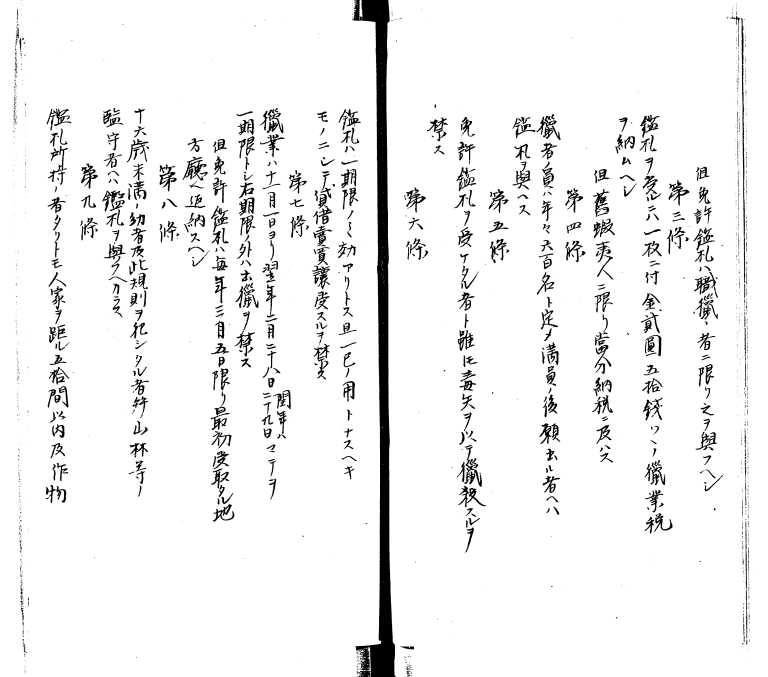 但免許鑑札ハ職獵ノ者ニ限リ之ヲ與フヘシ
第三條
鑑札ヲ受ルニハ一枚ニ付金貳圓五拾錢ツヽノ獵業税
ヲ納ムヘシ
但舊蝦夷人ニ限リ當分納税ニ及ハス
第四條
獵者ノ員ハ年々六百名ト定メ滿員ノ後願出ル者ヘハ
鑑札ヲ與ヘス
第五條
免許鑑札ヲ受ケタル者ト雖𪜈毒矢ヲ以テ獵殺スルヲ
禁ス
第六條
鑑札ハ一期限ノミ効アリトス且一己ノ用トナスヘキ
モノニシテ貸借賣買讓受スルヲ禁ス
第七條
獵業ハ十一月一日ヨリ翌年二月二十八日閏年ハ二十九日マテヲ
一期限トシ右期限ノ外ハ出獵ヲ禁ス
但免許鑑札ハ毎年三月五日限リ最初受取タル地
方廳ヘ返納スヘシ
第八條
十六歳未滿ノ幼者及此規則ヲ犯シタル者并山林等ノ
監守者ヘハ鑑札ヲ與フヘカラス
第九條
鑑札所持ノ者タリトモ人家ヲ距ル五拾間以内及作物